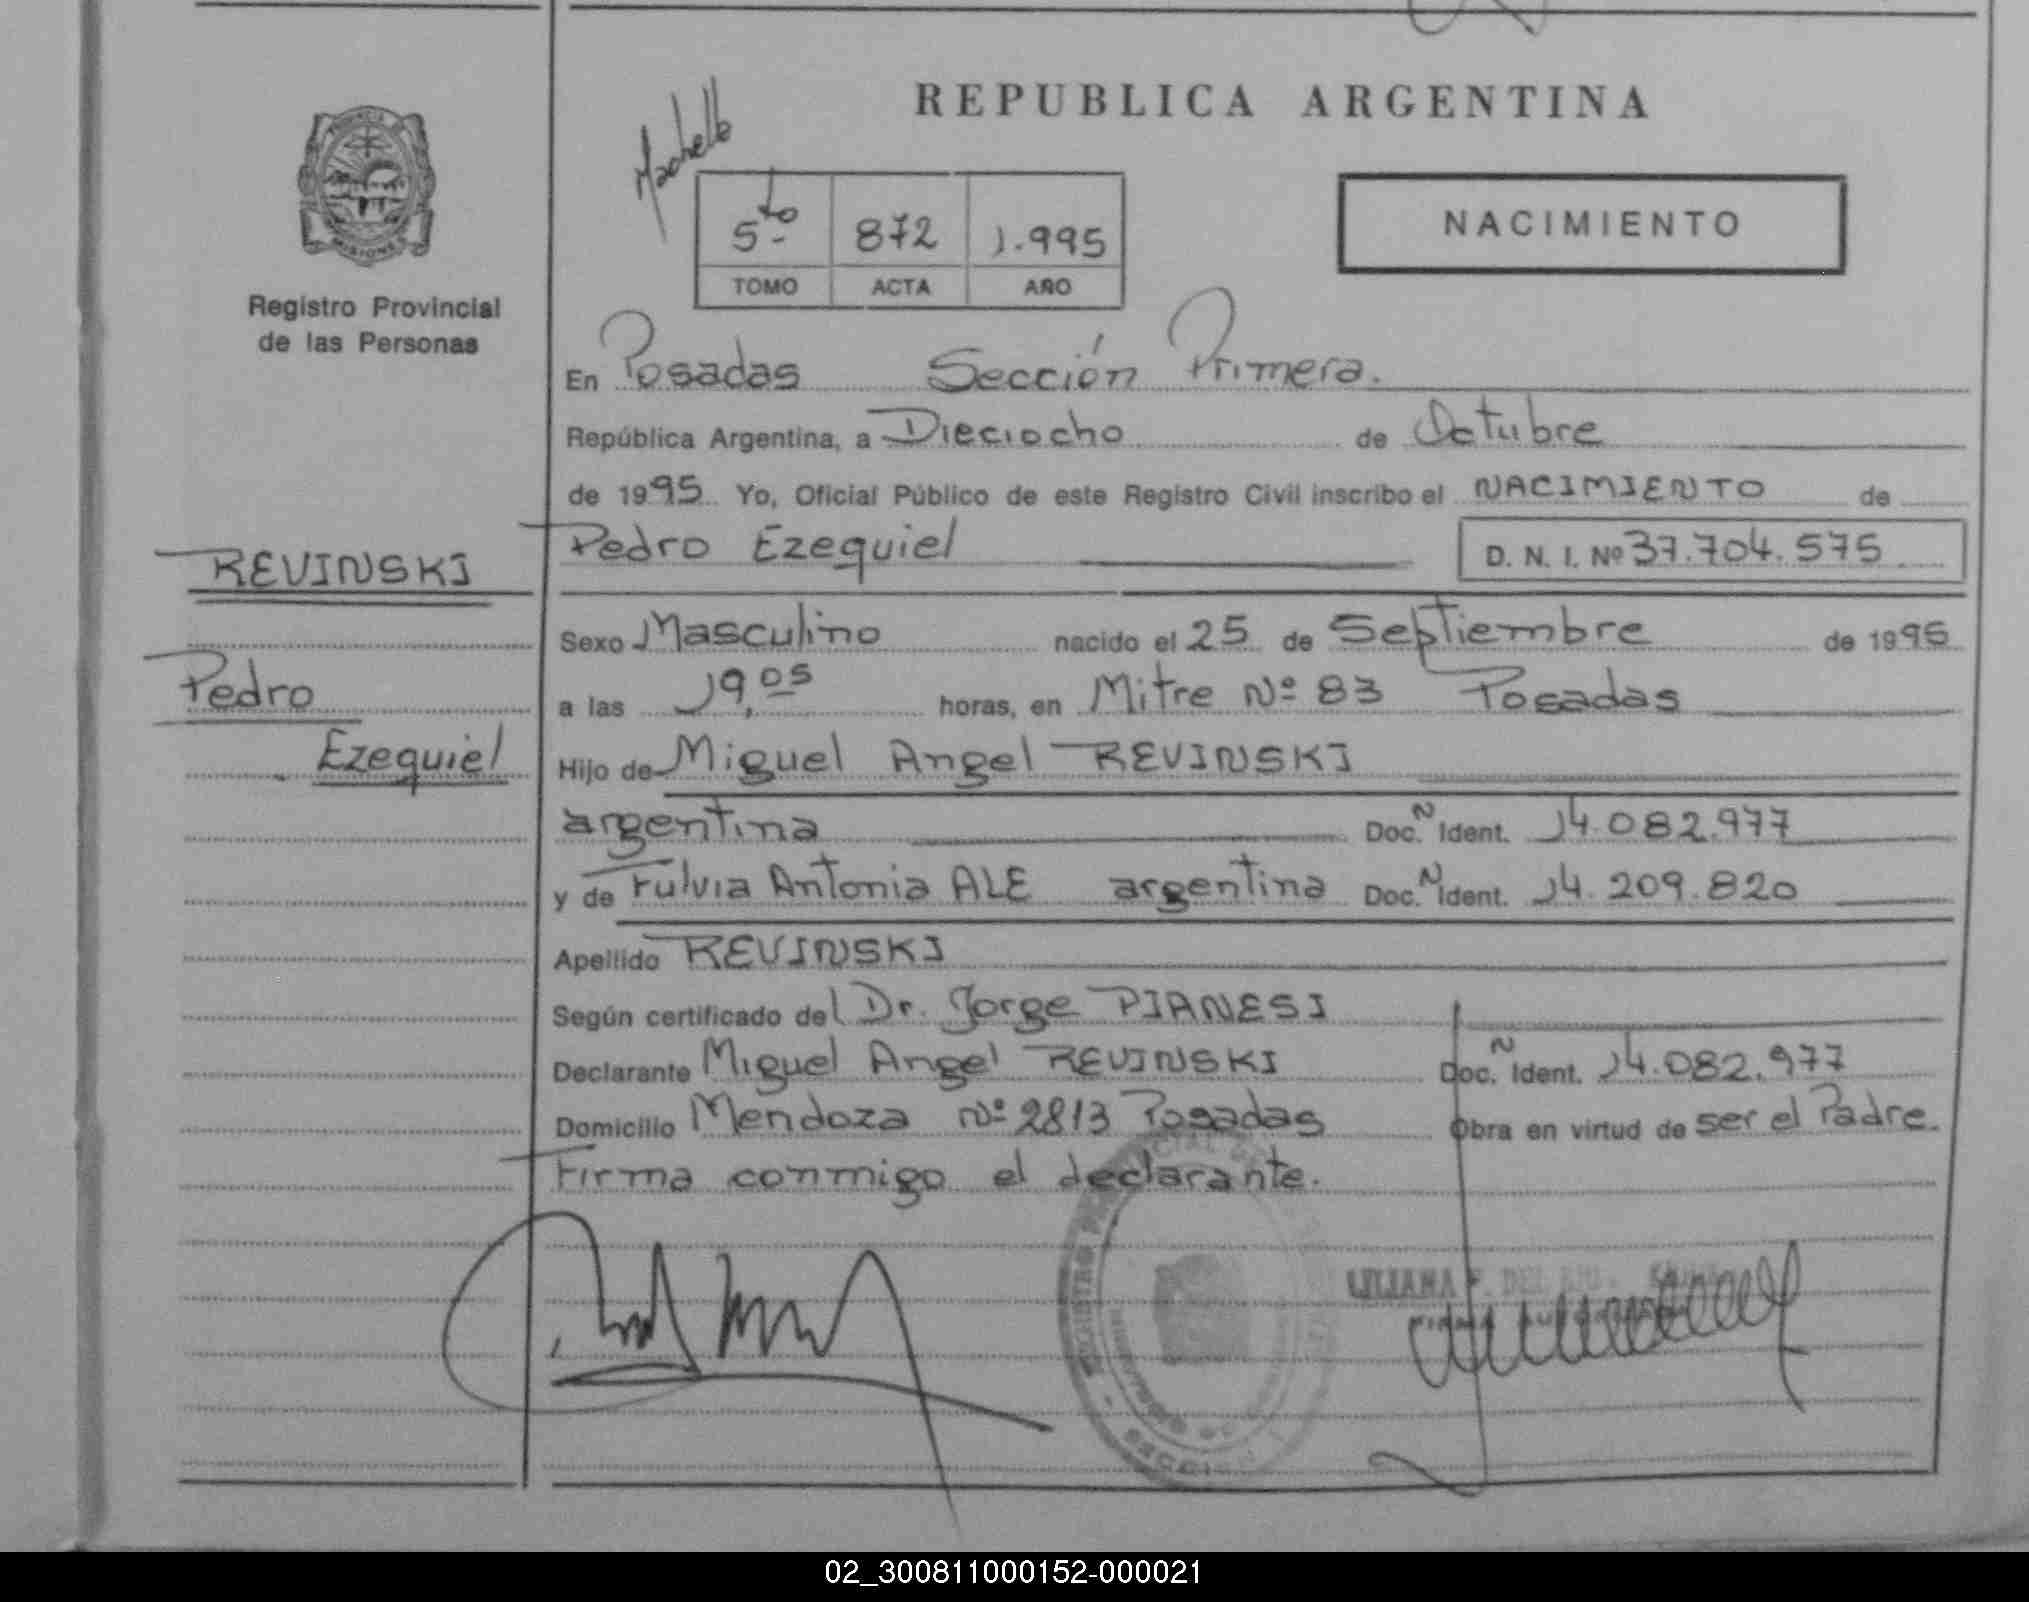 REPUBLICA ARGENTINA
NACIMIENTO
PROVINCIA DE
MISIONES
Registro Provincial
de las Personas
5to 872 1.995
TOMO ACTA AÑO
En Posadas Sección Primera.
República Argentina, a Dieciocho de Octubre
de 1995 Yo, Oficial Público de este Registro Civil inscribo el NACIMIENTO de
REVINSKI
Pedro
Ezequiel
Pedro Ezequiel D. N. I. Nº 37.704.575
Sexo Masculino nacido el 25 de Septiembre de 1995
a las 19,05 horas, en Mitre Nº 83 Posadas
Hijo de Miguel Angel REVINSKI
argentina Doc. N Ident. 14.082.977
y de Fulvia Antonia ALE argentina Doc. N Ident. 14.209.820
Apellido REVINSKI
Según certificado del Dr. Jorge PIANESI
Declarante Miguel Angel REVINSKI Doc. N Ident. 14.082.977
Domicilio Mendoza Nº 2813 Posadas Obra en virtud de ser el Padre.
Firma conmigo el declarante.
LILIANA
02_300811000152-000021